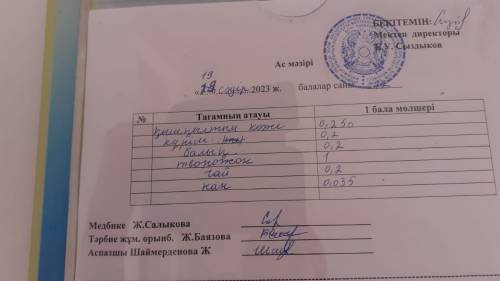 БЕКІТЕМІН:
Мектеп директоры
Қ.У. Сыздыков
Ас мәзірі
19
« » сәуір 2023 ж. балалар саны
№ Тағамның атауы 1 бала мөлшері
қышқылтым көже 0,250
күріш 0,2
балық 0,2
творожок 1
чай 0,2
нан 0,035
Медбике Ж.Салыкова
Тәрбие жұм. орынб. Ж.Баязова
Аспазшы Шаймерденова Ж